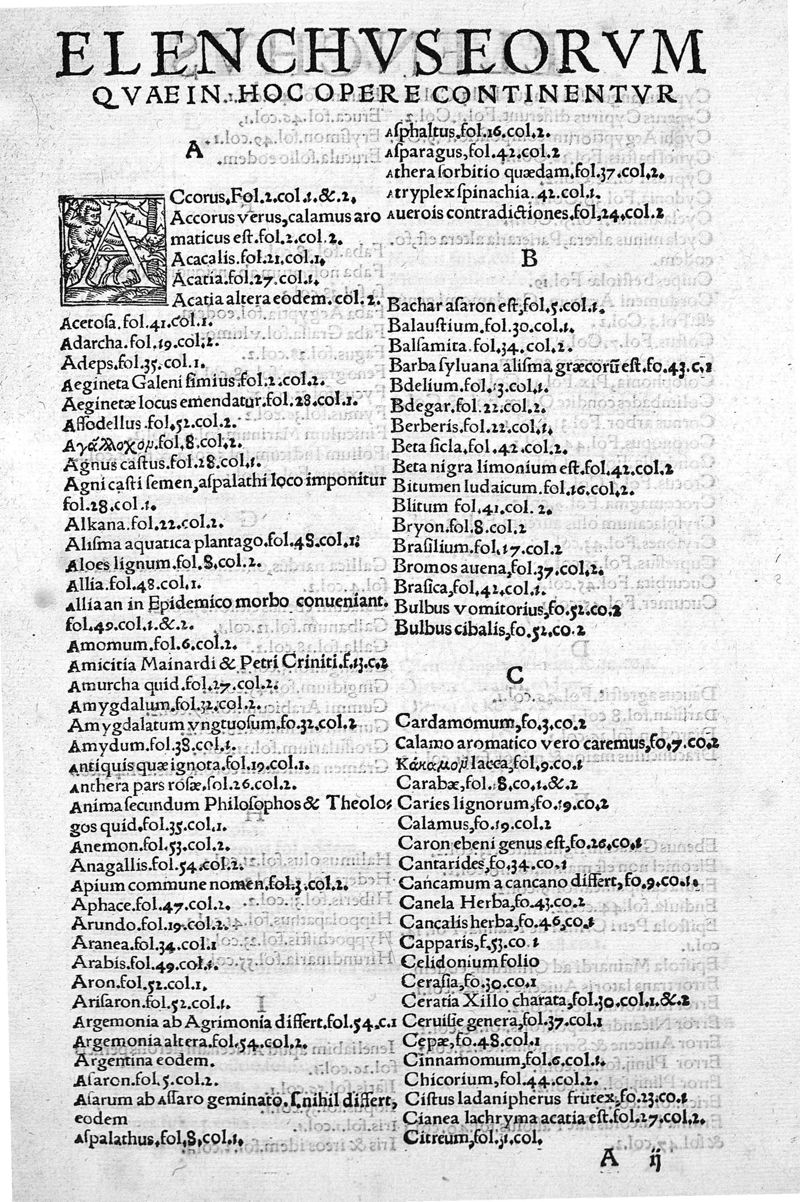 ELENCHVS EORVM
QVAE IN HOC OPERE CONTINENTVR
A
ACcorus, Fol.2.col.1.&.2.
Accorus verus, calamus aro
maticus est.fol.2.col.2.
Acacalis.fol.21.col.1.
Acatia.fol.27.col.1.
Acatia altera eodem.col.2.
Acetosa.fol.41.col.1.
Adarcha.fol.19.col.2.
Adeps.fol.35.col.1.
Aegineta Galeni simius.fol.2.col.2.
Aeginetæ locus emendatur.fol.28.col.1.
Affodellus.fol.52.col.2.
fol.8.col.2.
Agnus castus.fol.28.col.1.
Agni casti semen, aspalathi loco imponitur
fol.28.col.1.
Alkana.fol.22.col.2.
Alisma aquatica plantago.fol.48.col.1.
Aloes lignum.fol.8.col.2.
Allia.fol.48.col.1.
Allia an in Epidemico morbo conueniant.
fol.49.col.1.&.2.
Amomum.fol.6.col.2.
Amicitia Mainardi & Petri Criniti.f.13.c.2
Amurcha quid.fol.27.col.2.
Amygdalum.fol.32.col.2.
Amygdalatum vnguosum.fo.32.col.2
Amydum.fol.38.col.1.
Antiquis quæ ignota.fol.19.col.1.
Anthera pars rosæ, fol.26.col.2.
Anima secundum Philosophos & Theolo
gos quid.fol.35.col.1.
Anemon.fol.53.col.2.
Anagallis.fol.54.col.2.
Apium commune nomen.fol.3.col.2.
Aphace.fol.47.col.2.
Arundo.fol.19.col.2.
Aranea.fol.34.col.1
Arabis.fol.49.col.1.
Aron.fol.52.col.1.
Arisaron.fol.52.col.1.
Argemonia ab Agrimonia differt.fol.54.c.1
Argemonia altera.fol.54.col.2.
Argentina eodem.
Asaron.fol.5.col.2.
Asarum ab Assaro geminato.s.nihil differt,
eodem
Aspalathus,fol.8,col.1.
Asphaltus,fol.16.col.2.
Asparagus,fol.42.col.2
Athera sorbitio quædam,fol.37.col.2.
Atryplex spinachia.42.col.1.
Auerois contradictiones,fol,24,col.2
B
Bachar asaron est,fol.5.col.1.
Balaustium.fol.30.col.1.
Balsamita.fol.34.col.2.
Barba syluana alisma græcorū est.fo.43.c.1
Bdelium.fol.13.col.1.
Bdegar.fol.22.col.2.
Berberis.fol.22.col.1.
Beta sicla,fol.42.col.2.
Beta nigra limonium est.fol.42.col.2
Bitumen Iudaicum.fol.16.col.2.
Blitum fol.41.col.2.
Bryon.fol.8.col.2
Brasilium.fol.17.col.2
Bromos auena,fol.37.col.2.
Brasica,fol.42,col.1.
Bulbus vomitorius,fo.52.co.2
Bulbus cibalis,fo.52.co.2
C
Cardamomum,fo.3.co.2
Calamo aromatico vero caremus,fo.7.co.2
lacca,fol.9.co.1
Carabæ,fol.8.co.1.&.2
Caries lignorum,fo.19.co.2
Calamus,fo.19.col.2
Caron ebeni genus est,fo.26.co.1
Cantarides,fo.34.co.1
Cancamum a cancano differt,fo.9.co.1.
Canela Herba,fo.43.co.2
Cancalis herba,fo.46,co.1
Capparis,f.53.co.1
Celidonium folio
Cerasia,fo.30.co.1
Ceratia Xillo charata,fol.30.col.1.&.2
Ceruisie genera,fol.37.col.1
Cepæ,fo.48.col.1
Cinnamomum,fol.6.col.1.
Chicorium,fol.44.col.2.
Cistus ladanipherus frutex,fo.23.co.1
Cianea lachryma acatia est.fol.27.col.2.
Citreum,fol.31.col.
A ij